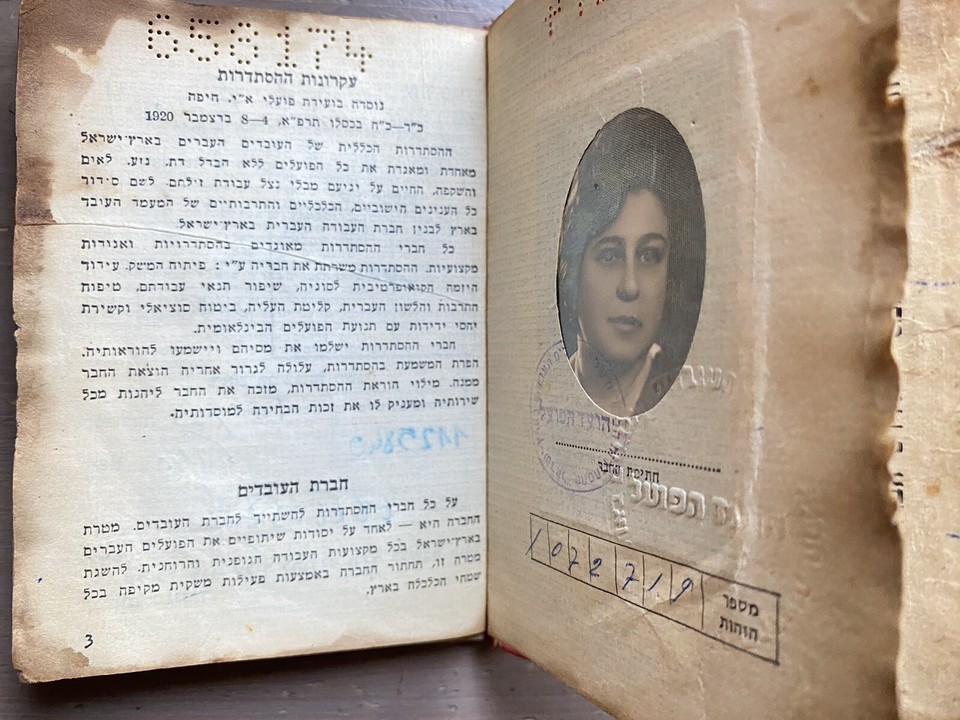 658174
עקרונות ההסתדרות
נוסדה בועידת פועלי א"י, חיפה
כ"ד—כ"ח בכסלו תרפ"א, 4—8 בדצמבר 1920
ההסתדרות הכללית של העובדים העברים בארץ־ישראל
מאחדת ומאגדת את כל הפועלים ללא הבדל דת, גזע, לאום
והשקפה, החיים על יגיעם מבלי נצל עבודת זולתם, לשם סידור
כל הענינים הישוביים, הכלכליים והתרבותיים של המעמד העובד
בארץ לבנין חברת העבודה העברית בארץ־ישראל.
כל חברי ההסתדרות מאוגדים בהסתדרויות ואגודות
מקצועיות. ההסתדרות משרתת את חבריה ע"י: פיתוח המשק, עידוד
היזמה הקואופרטיבית לסוגיה, שיפור תנאי עבודתם, טיפוח
התרבות והלשון העברית, קליטת העליה, ביטוח סוציאלי וקשירת
יחסי ידידות עם תנועת הפועלים הבינלאומית.
חברי ההסתדרות ישלמו את מסיהם ויישמעו להוראותיה.
הפרת המשמעת בהסתדרות, עלולה לגרור אחריה הוצאת החבר
ממנה. מילוי הוראת ההסתדרות, מזכה את החבר ליהנות מכל
שירותיה ומעניק לו את זכות הבחירה למוסדותיה.
חברת העובדים
על כל חברי ההסתדרות להשתייך לחברת העובדים. מטרת
החברה היא — לאחד על יסודות שיתופיים את הפועלים העברים
בארץ־ישראל בכל מקצועות העבודה הגופנית והרוחנית. להשגת
מטרה זו, תחתור החברה באמצעות פעילות משקית מקיפה בכל
שטחי הכלכלה בארץ.
3
הועד הפועל
חתימת החבר
הפועל
מספר הזהות
1072719